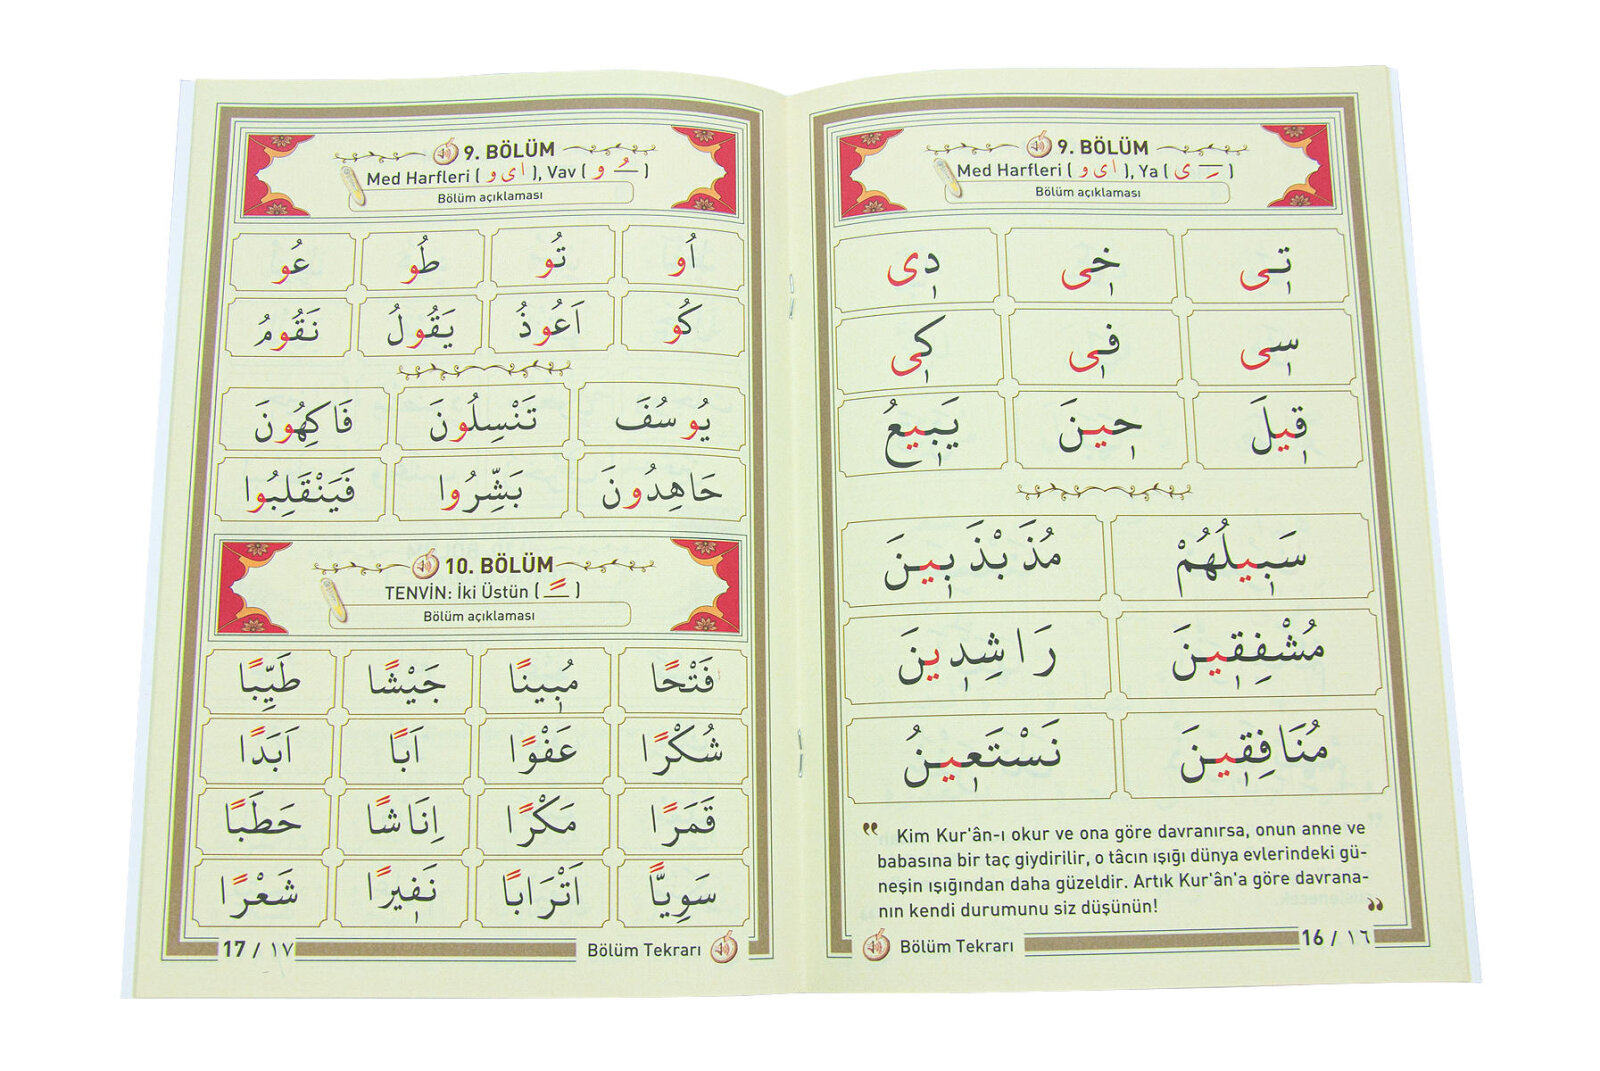 9. BÖLÜM
Med Harfleri ( ا ى و ), Ya ( ـِ ى )
Bölüm açıklaması
تِى خِى دِى
سِى فِى كِى
قِيلَ حِينَ يَبِيعُ
سَبِيلَهُمْ مُذَبْذَبِينَ
مُشْفِقِينَ رَاشِدِينَ
مُنَافِقِينَ نَسْتَعِينُ
" Kim Kur'ân-ı okur ve ona göre davranırsa, onun anne ve
babasına bir taç giydirilir, o tâcın ışığı dünya evlerindeki gü-
neşin ışığından daha güzeldir. Artık Kur'ân'a göre davrana-
nın kendi durumunu siz düşünün! "
Bölüm Tekrarı 16 / ١٦
9. BÖLÜM
Med Harfleri ( ا ى و ), Vav ( ـُ و )
Bölüm açıklaması
اُو تُو طُو عُو
كُو اَعُوذُ يَقُولُ نَقُومُ
يُوسُفَ تَنْسِلُونَ فَاكِهُونَ
جَاهِدُونَ بَشِّرُوا فَيَنْقَلِبُوا
10. BÖLÜM
TENVİN: İki Üstün ( ـً )
Bölüm açıklaması
فَتْحًا مُبِينًا جَيْشًا طَيِّبًا
شُكْرًا عَفْوًا اَبًا اَبَدًا
قَمَرًا مَكْرًا اِنَاثًا حَطَبًا
سَوِيًّا اَتْرَابًا نَفِيرًا شَعْرًا
17 / ١٧ Bölüm Tekrarı